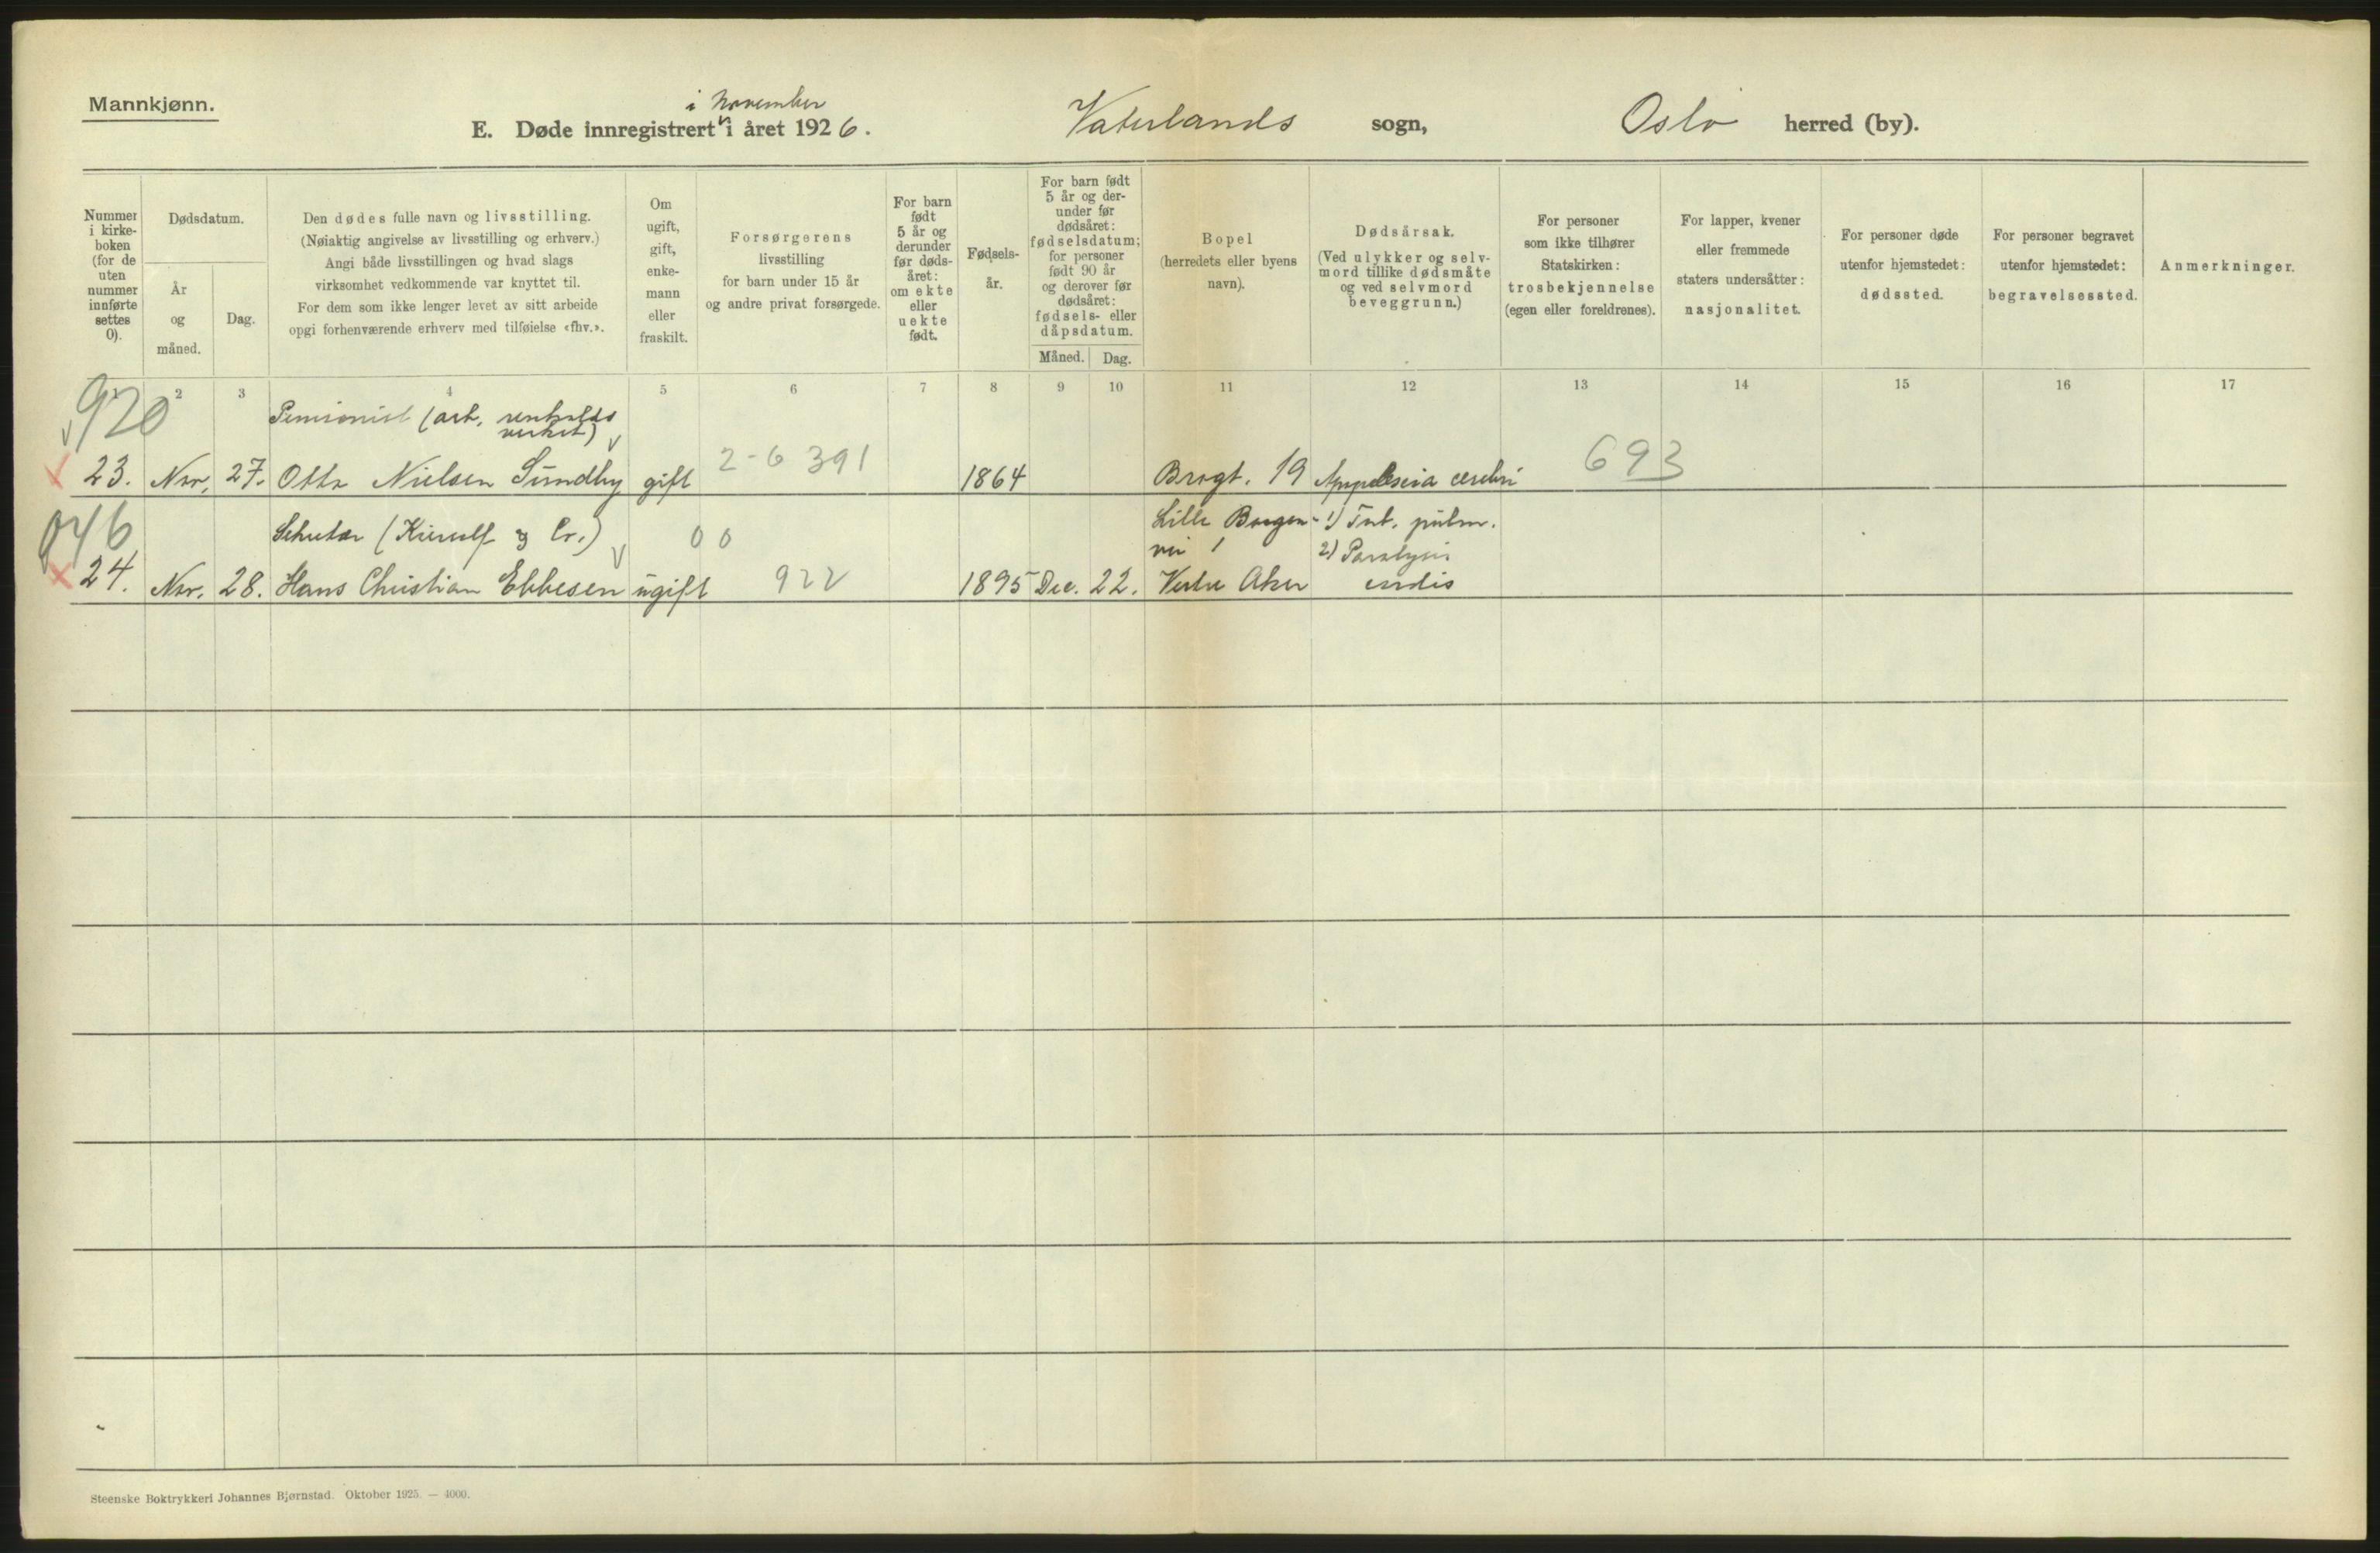 Mannkjønn.
i November
E. Døde innregistrert i året 1926. Vaterlands sogn, Oslo herred (by).
Nummer i kirke-boken (for de uten nummer innførte settes 0).
Dødsdatum.
År og måned.
Dag.
Den dødes fulle navn og livsstilling.
(Nøiaktig angivelse av livsstilling og erhverv.)
Angi både livsstillingen og hvad slags
virksomhet vedkommende var knyttet til.
For dem som ikke lenger levet av sitt arbeide
opgi forhenværende erhverv med tilføielse «fhv.».
Om ugift, gift, enke-mann eller fraskilt.
Forsørgerens
livsstilling
for barn under 15 år
og andre privat forsørgede.
For barn født 5 år og derunder før døds-året: om ekte eller uekte født.
Fødsels-år.
For barn født 5 år og der-under før dødsåret: fødselsdatum; for personer født 90 år og derover før dødsåret: fødsels- eller dåpsdatum.
Måned. Dag.
Bopel
(herredets eller byens navn).
Dødsårsak.
(Ved ulykker og selv-mord tillike dødsmåte og ved selvmord beveggrunn.)
For personer som ikke tilhører Statskirken: trosbekjennelse (egen eller foreldrenes).
For lapper, kvener eller fremmede staters undersåtter: nasjonalitet.
For personer døde utenfor hjemstedet: dødssted.
For personer begravet utenfor hjemstedet: begravelsessted.
Anmerkninger.
2 3 4 5 6 7 8 9 10 11 12 13 14 15 16 17
920
Pensionist (arb. renholds
verket)
23. Nov. 27. Otto Nielsen Sundby gift 2-6 391 1864 Brogt. 19 Apopleksia cerebri 693
046
Sekretær (Kierulf & Co.) 00 Lille Borgen- 1) Tub. pulm.
vei 1 2) Paralysis
24. Nov. 28. Hans Christian Ebbesen ugift 922 1895 Dec. 22. Vestre Aker cordis
Steenske Boktrykkeri Johannes Bjørnstad. Oktober 1925. — 4000.